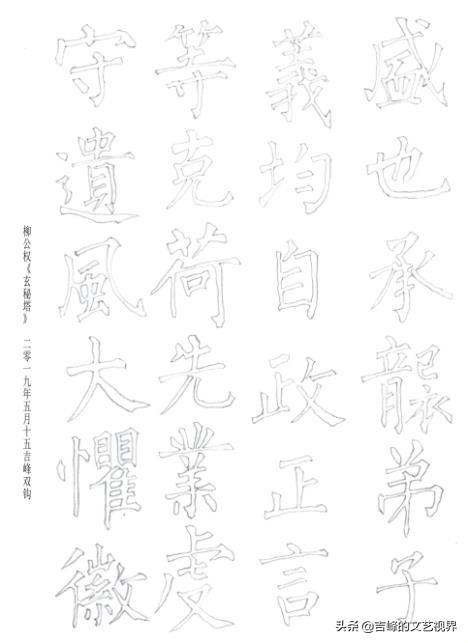 盛也承襲弟子
義均自政正言
等克荷先業虔
守遺風大懼徽
柳公权《玄秘塔》 二零一九年五月十五吉峰双钩
头条 @吉峰的文艺视界